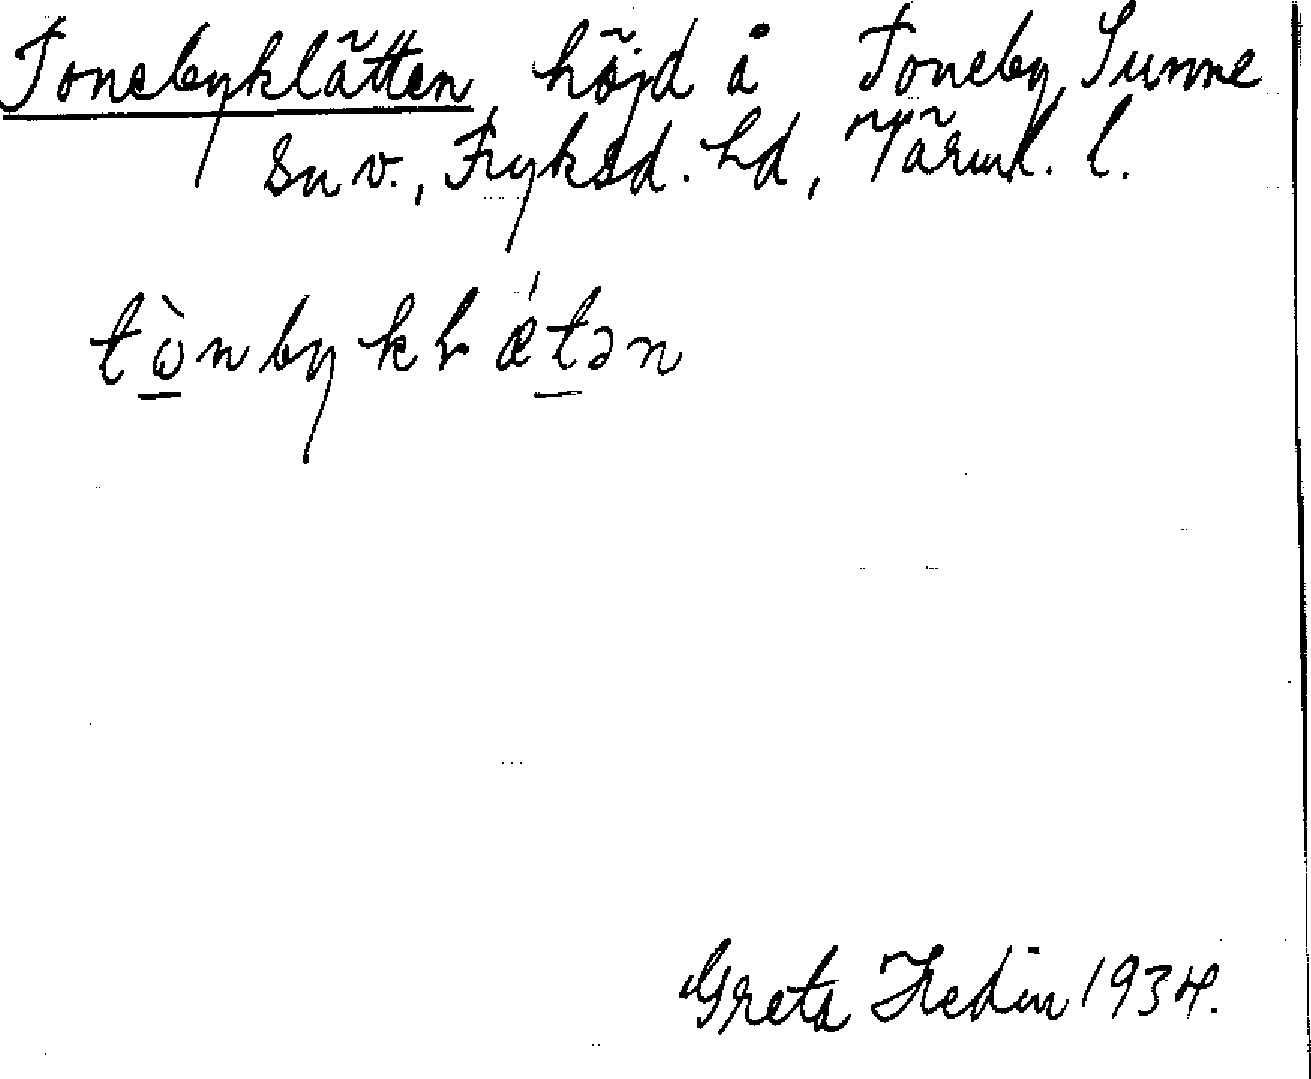 Tonebyklätten, höjd å Toneby, Sunne
sn v., Fryksd. hd, Värml. l.
tò̲nbykɫǽt̲ən
Greta Hedin 1934.